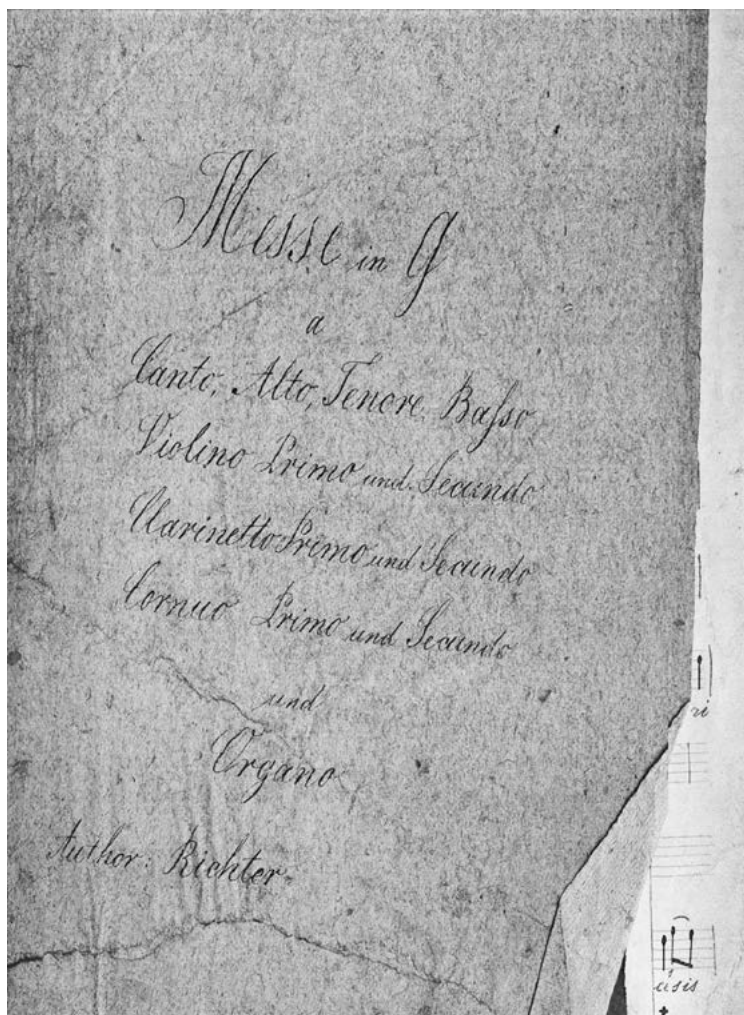 Messe in G
a
Canto, Alto, Tenore Baſso
Violino Primo und Secundo
Clarinetto Primo und Secundo
Cornuo Primo und Secundo
und
Organo
Author: Richter.
ri
usis